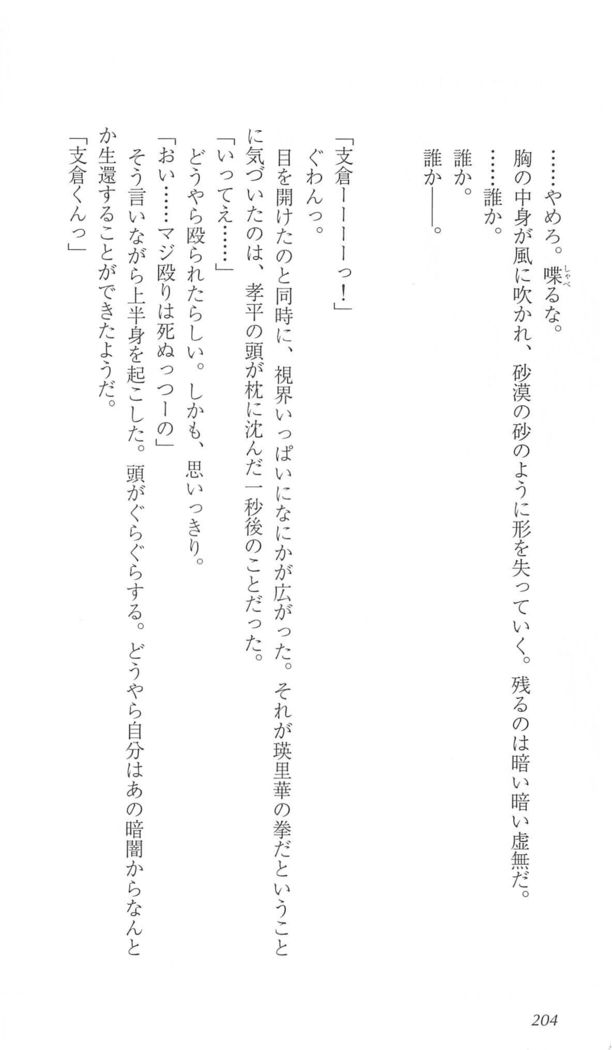 ……やめろ。喋るな。
胸の中身が風に吹かれ、砂漠の砂のように形を失っていく。残るのは暗い暗い虚無だ。
……誰か。
誰か。
誰か――。
「支倉ーーーーっ！」
ぐわんっ。
目を開けたのと同時に、視界いっぱいになにかが広がった。それが瑛里華の拳だということ
に気づいたのは、孝平の頭が枕に沈んだ一秒後のことだった。
「いってえ……」
どうやら殴られたらしい。しかも、思いっきり。
「おい……マジ殴りは死ぬっつーの」
そう言いながら上半身を起こした。頭がぐらぐらする。どうやら自分はあの暗闇からなんと
か生還することができたようだ。
「支倉くんっ」
204